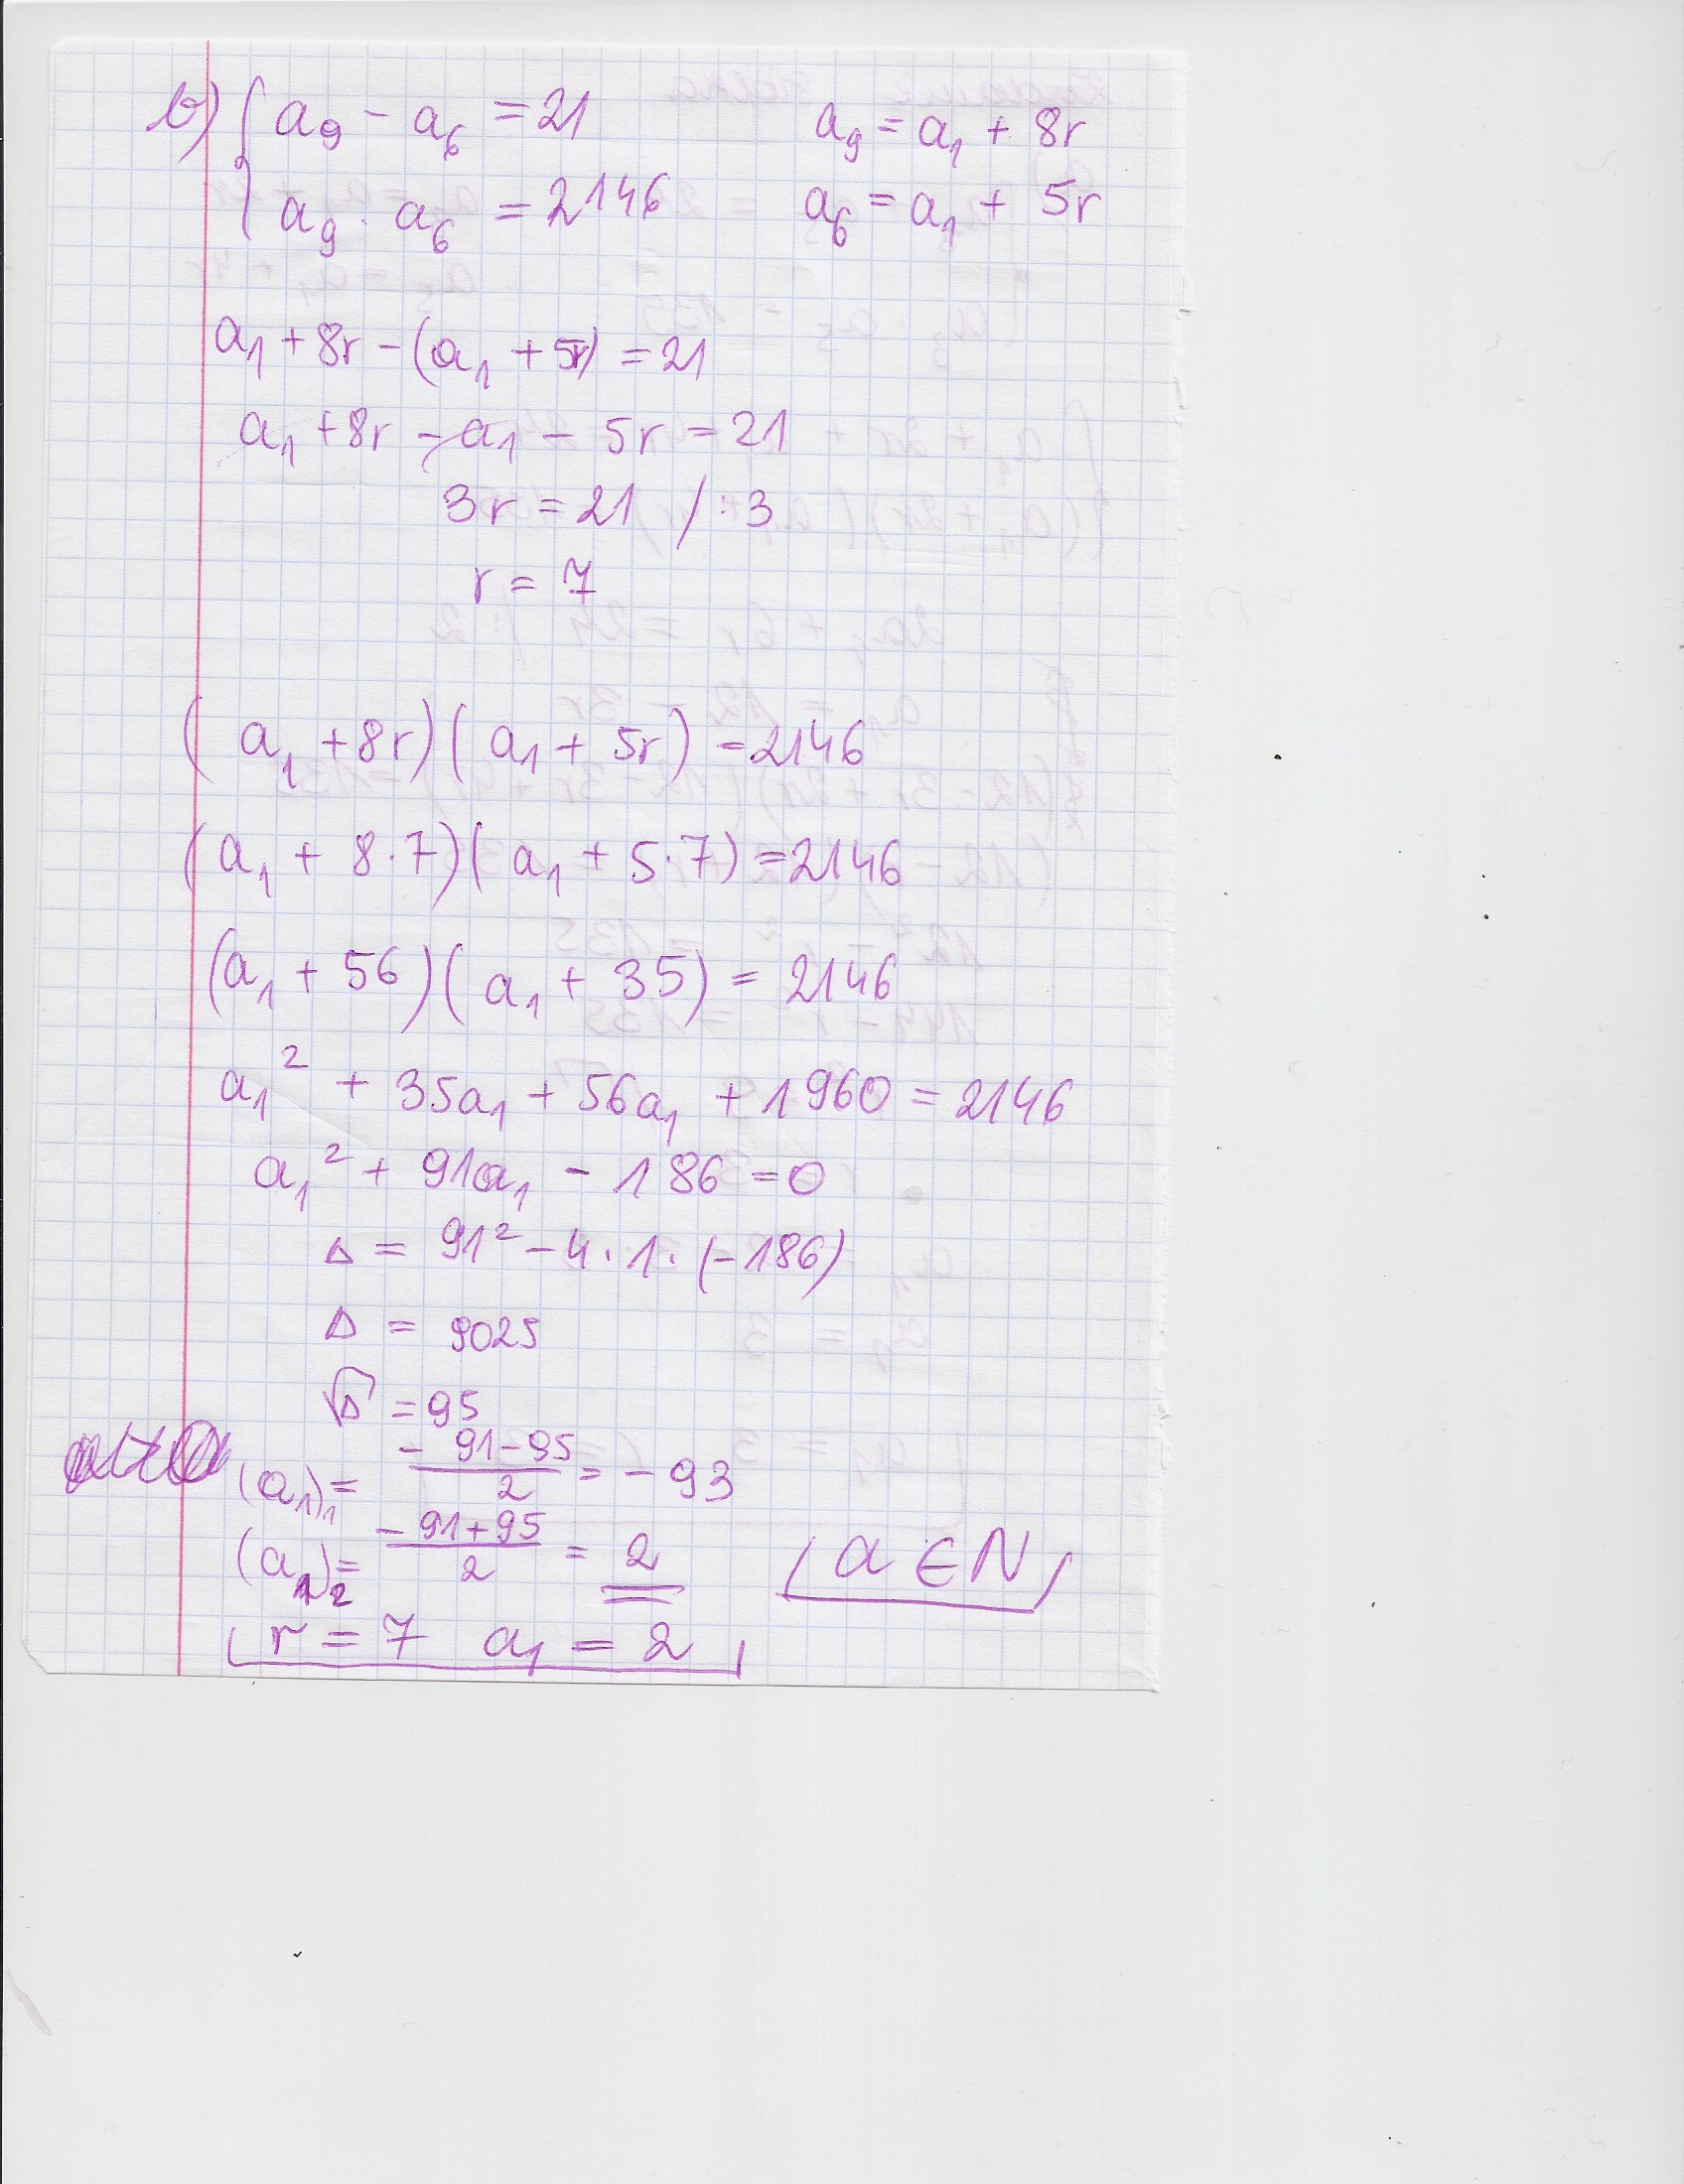 b) { a₉ - a₆ = 21     a₉ = a₁ + 8r
a₉ · a₆ = 2146     a₆ = a₁ + 5r
a₁ + 8r - (a₁ + 5r) = 21
a₁ + 8r - a₁ - 5r = 21
3r = 21 / : 3
r = 7
(a₁ + 8r)(a₁ + 5r) = 2146
(a₁ + 8·7)(a₁ + 5·7) = 2146
(a₁ + 56)(a₁ + 35) = 2146
a₁² + 35a₁ + 56a₁ + 1960 = 2146
a₁² + 91a₁ - 186 = 0
Δ = 91² - 4 · 1 · (-186)
Δ = 9025
√Δ = 95
(a₁)₁ = (-91-95)/2 = -93
(a₁)₂ = (-91+95)/2 = 2     a ∈ N
r = 7  a₁ = 2